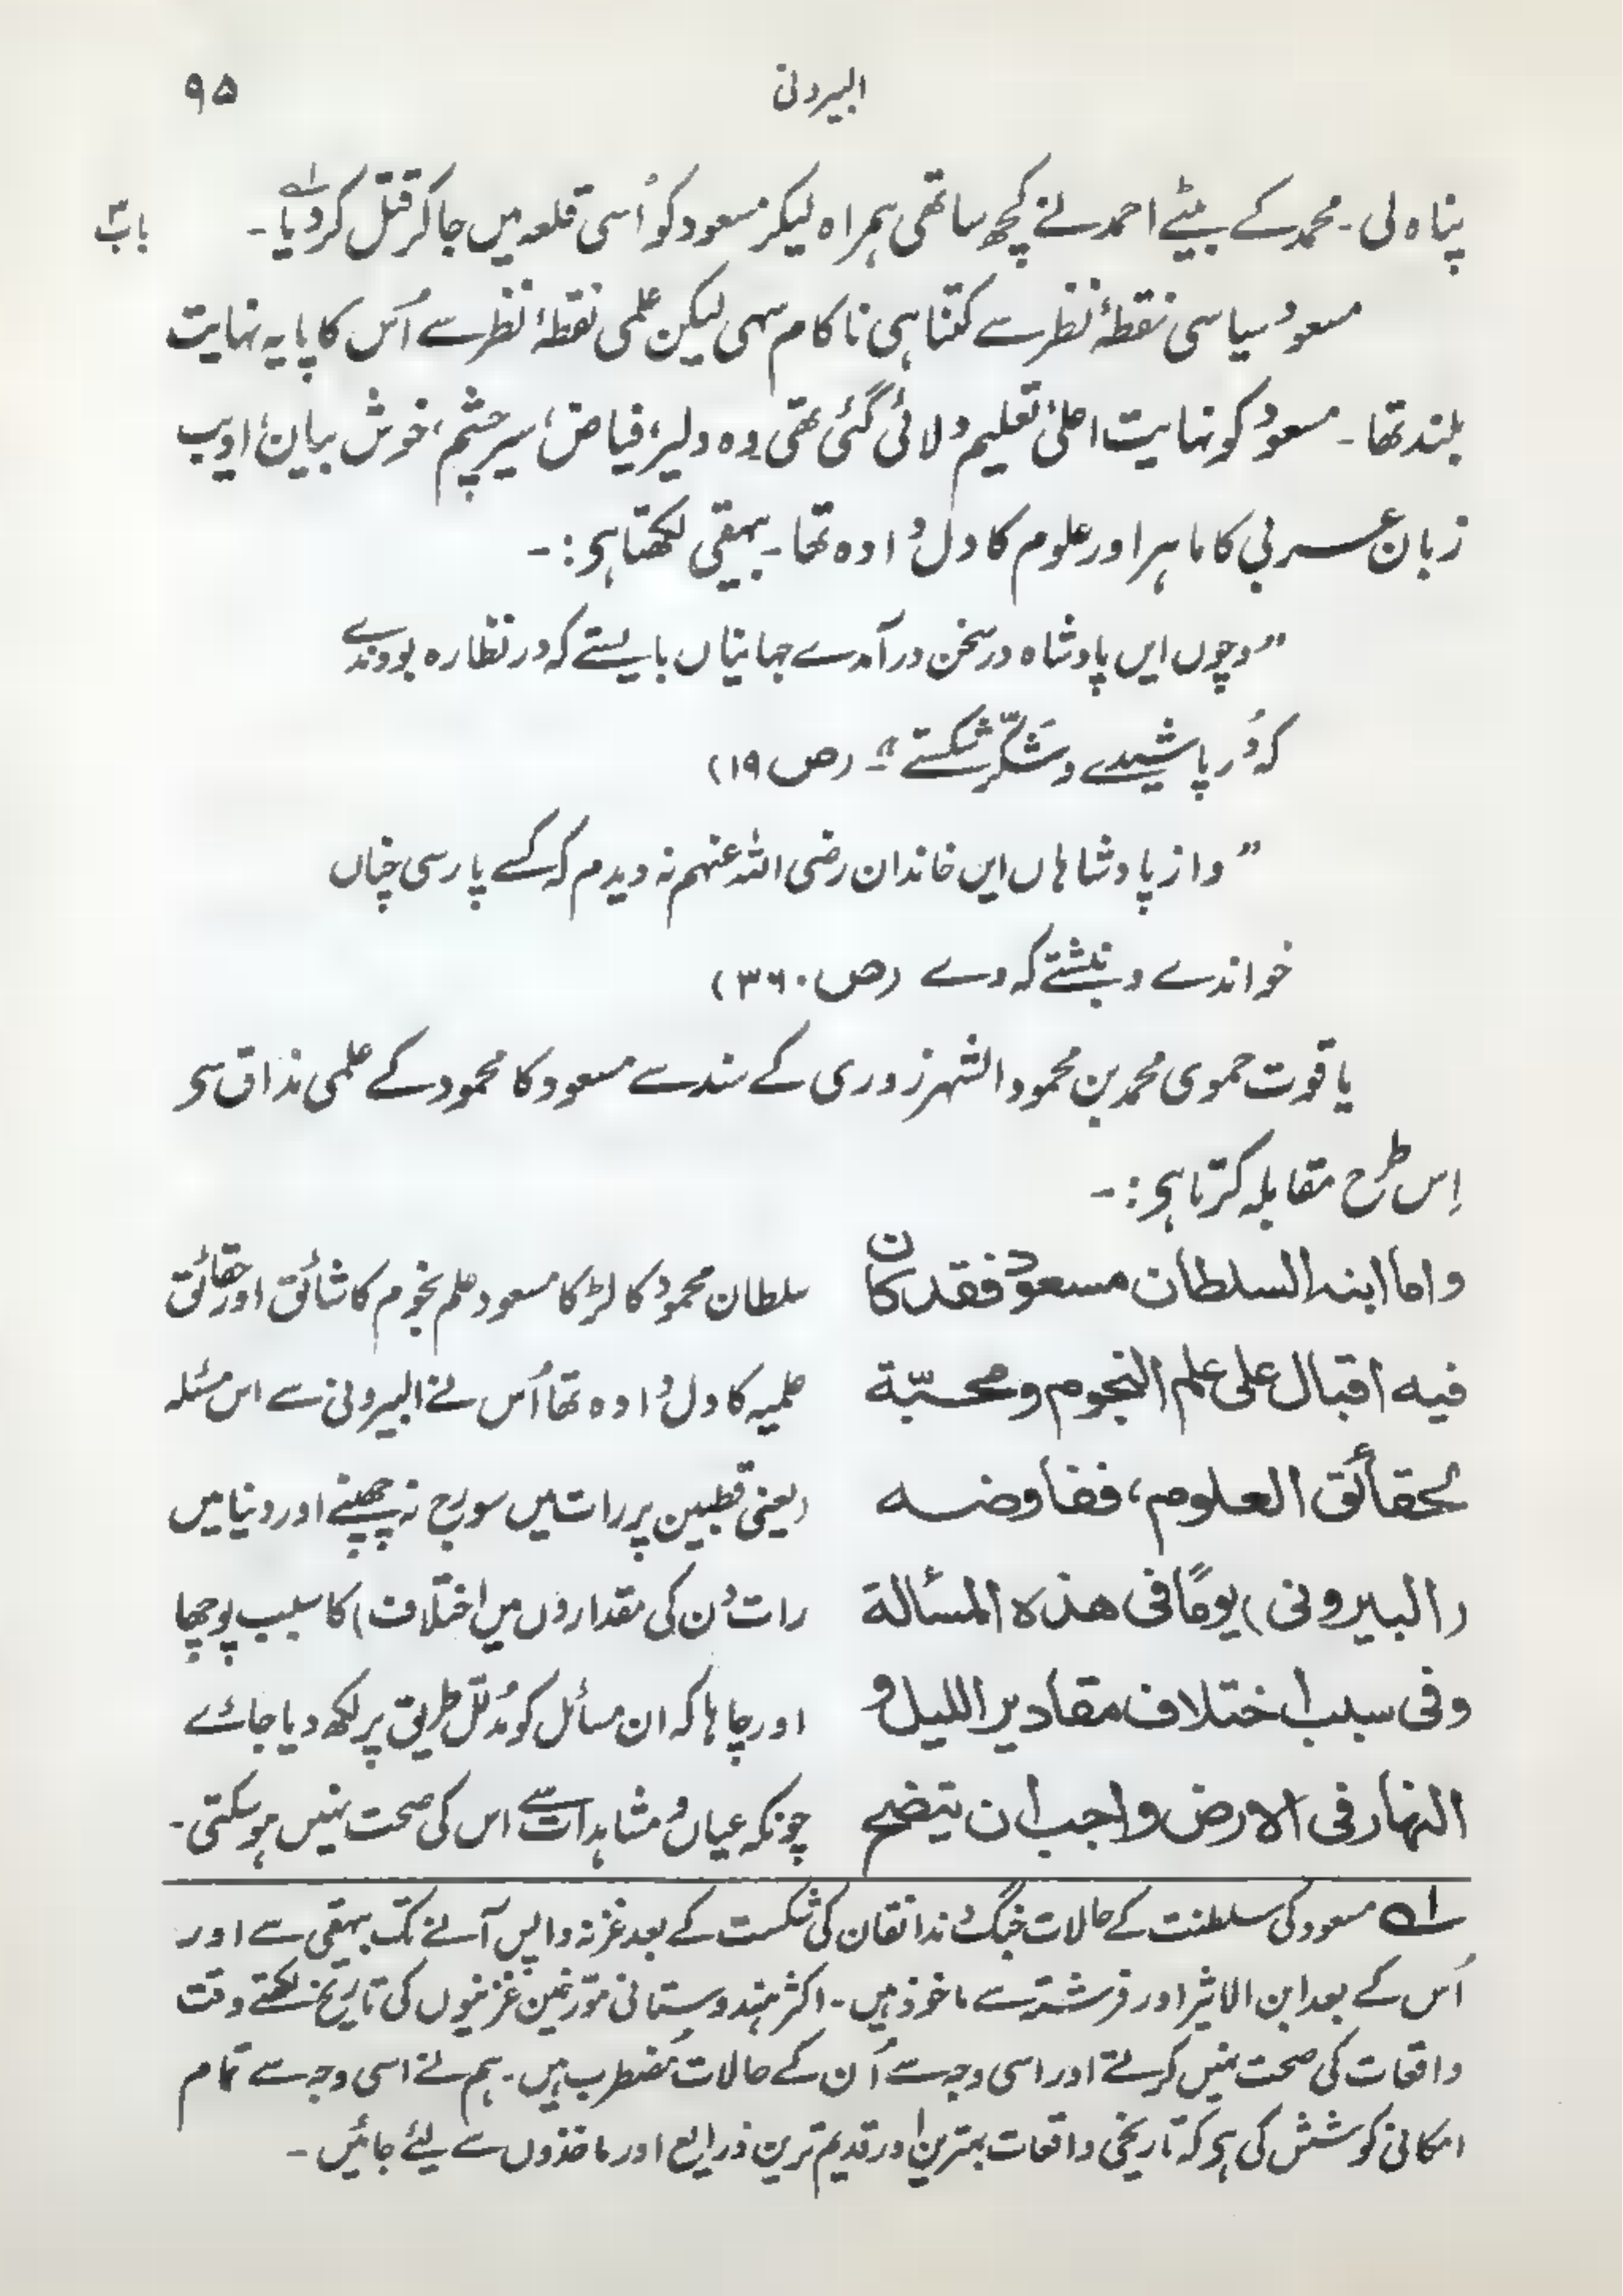 البیرونی
۹۵
پناہ لی۔ محمد کے بیٹے احمد نے کچھ ساتھی ہمراہ لیکر مسعود کو اُسی قلعہ میں جا کر قتل کر دیا۱؎۔
باب۳
مسعود سیاسی نقطۂ نظر سے کتنا ہی ناکام سہی لیکن علمی نقطۂ نظر سے اُس کا پایہ نہایت
بلند تھا۔ مسعود کو نہایت اعلیٰ تعلیم دلائی گئی تھی وہ دلیر، فیاض، سیر چشم، خوش بیان، ادیب
زبان عربی کا ماہر اور علوم کا دل دادہ تھا۔ بیہقی لکھتا ہی:۔
”وچوں ایں پادشاہ در سخن در آمدے جہانیاں بایستے کہ در نظارہ بودندے
کہ دُر پاشیدے و شَکّر شکستے“۔ (ص ۱۹)
”واز پادشاہاں ایں خاندان رضی اللہ عنہم نہ دیدم کہ کسے پارسی چناں
خواندے و نبشتے کہ وے (ص ۳۶۰)
یاقوت حموی محمد بن محمود الشہرزوری کے سند سے مسعود کا محمود کے علمی مذاق سی
اِس طرح مقابلہ کرتا ہی:۔
واما ابنہ السلطان مسعود فقد کان
فیہ اقبال علی علم النجوم ومحبّۃ
لحقائق العلوم، ففاوضہ
(البیرونی) یومًا فی ھذہ المسألۃ
وفی سبب اختلاف مقادیر اللیل و
النہار فی الارض واجب ان یتضح
سلطان محمود کا لڑکا مسعود علم نجوم کا شائق اور حقائق
علمیہ کا دل دادہ تھا اُس نے البیرونی سے اس مسئلہ
(یعنی قطبین پر رات میں سورج نہ چھپنے اور دنیا میں
رات دن کی مقداروں میں اختلاف) کا سبب پوچھا
اور چاہا کہ ان مسائل کو مُدلّل طریق پر لکھ دیا جائے
چونکہ عیان و مشاہدات سے اس کی صحت نہیں ہو سکتی۔
۱؎ مسعود کی سلطنت کے حالات جنگ دندانقان کی شکست کے بعد غزنہ واپس آنے تک بیہقی سے اور
اُس کے بعد ابن الاثیر اور فرشتہ سے ماخوذ ہیں۔ اکثر ہندوستانی مورّخین غزنیوں کی تاریخ لکھتے وقت
واقعات کی صحت نہیں کرتے اور اسی وجہ سے اُن کے حالات مُضطرب ہیں۔ ہم نے اسی وجہ سے تمام
امکانی کوشش کی ہی کہ تاریخی واقعات بہترین اور قدیم ترین ذرایع اور ماخذوں سے لیئے جائیں۔